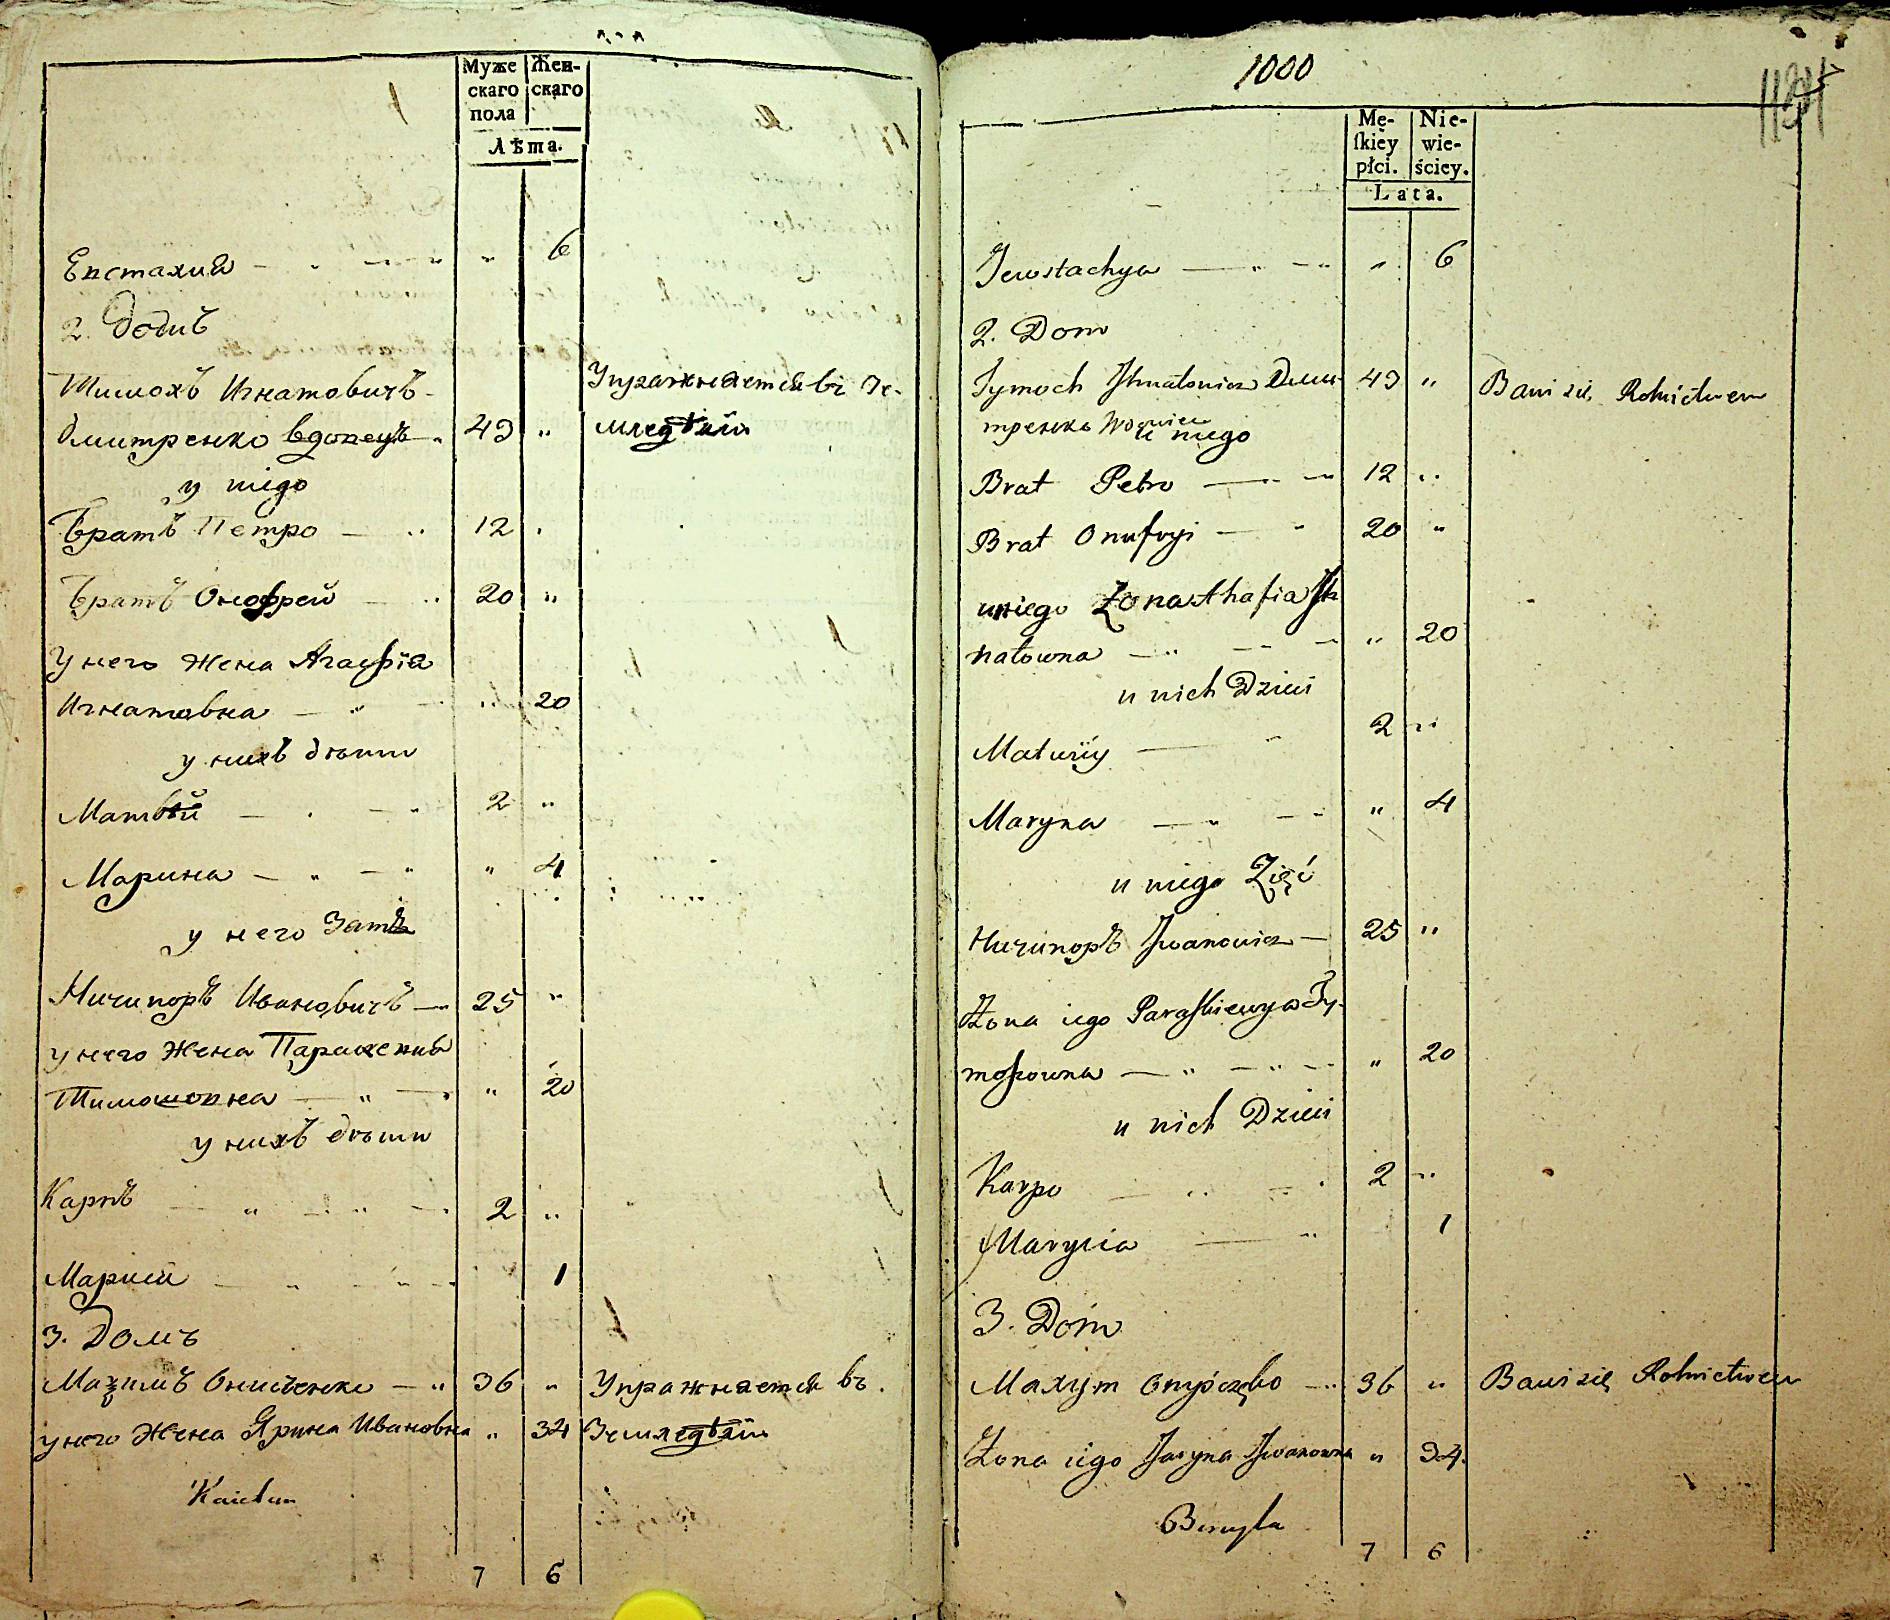 Муже
скаго
пола
Жен-
скаго
Лѣта.
Евстахия — „ — „ „ 6
2. Домъ
Тимохъ Игнатовичъ
Дмитренко вдовецъ „ 43 „
Упражняется въ Зе-
мледѣлии
у niego
Братъ Петро — „ 12 „
Братъ Онофрей — „ 20 „
У него жена Агафія
Игнатовна — „ — „ 20
у нихъ дѣти
Матвѣй — „ — „ 2 „
Марина — „ — „ „ 4
у него Зать
Ничипоръ Ивановичъ — 25 „
у него жена Параскевия
Тимошовна — „ — „ 20
у нихъ дѣти
Карпъ — „ — „ — 2 „
Марии — „ — „ — 1
3. Домъ
Махимъ Онисченко — „ 36 „ Упражняется въ
у него Жена Ярина Ивановна „ 34 Земледѣлии
7 6
1000
Mę-
ſkiey
płci.
Nie-
wie-
ściey.
Lata.
Jewstachya — „ — „ „ 6
2. Dom
Tymoch Ihnatowicz Дми- 43 „ Bawi się Rolnictwem
тренко Wdowiec
u niego
Brat Petro — „ 12 „
Brat Onufryi — „ 20 „
u niego Żona Ahafia Ih
natowna — „ — — „ 20
u nich Dzieci
Matwiiy — „ 2 „
Maryna — „ — „ „ 4
u niego Zięć
Ничипоръ Iwanowicz — 25 „
Żona iego Paraskiewya Ty-
moszowna — „ — „ — „ 20
u nich Dzieci
Karpo — „ — „ 2 „
Marycia — „ 1
3. Dom
Maxym Onyszczko — „ 36 „ Bawi się Rolnictwem
Żona iego Jaryna Iwanowna „ 34.
7 6